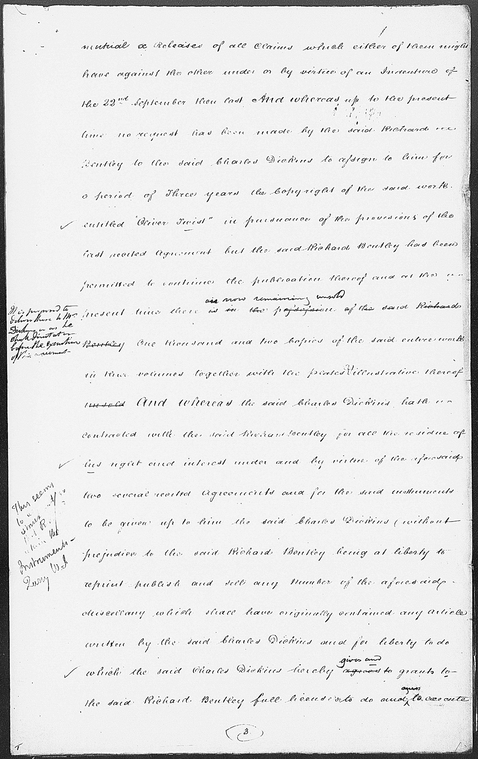 mutual releases of all Claims which either of them might
have against the other under or by virtue of an Indenture of
the 22nd September then last And whereas up to the present
time no request has been made by the said Richard
Bentley to the said Charles Dickens to assign to him for
a period of Three years the Copyright of the said work
entitled "Oliver Twist" in pursuance of the provisions of the
last recited Agreement but the said Richard Bentley has been
permitted to continue the publication thereof and at the
are now remaining unsold
present time there is in the possession of the said Richard
Bentley One thousand and two copies of the said entire work
in three volumes together with the plates illustrative thereof
unsold And whereas the said Charles Dickens hath
contracted with the said Richard Bentley for all the residue of
his right and interest under and by virtue of the aforesaid
two several recited Agreements and for the said instruments
to be given up to him the said Charles Dickens (without
prejudice to the said Richard Bentley being at liberty to
reprint publish and sell any Number of the aforesaid
Miscellany which shall have originally contained any article
written by the said Charles Dickens and for liberty to do
which the said Charles Dickens hereby
gives and
to grants to
the said Richard Bentley full license to do and to execute
It is proposed to
This seems
to
Instruments
Query
3